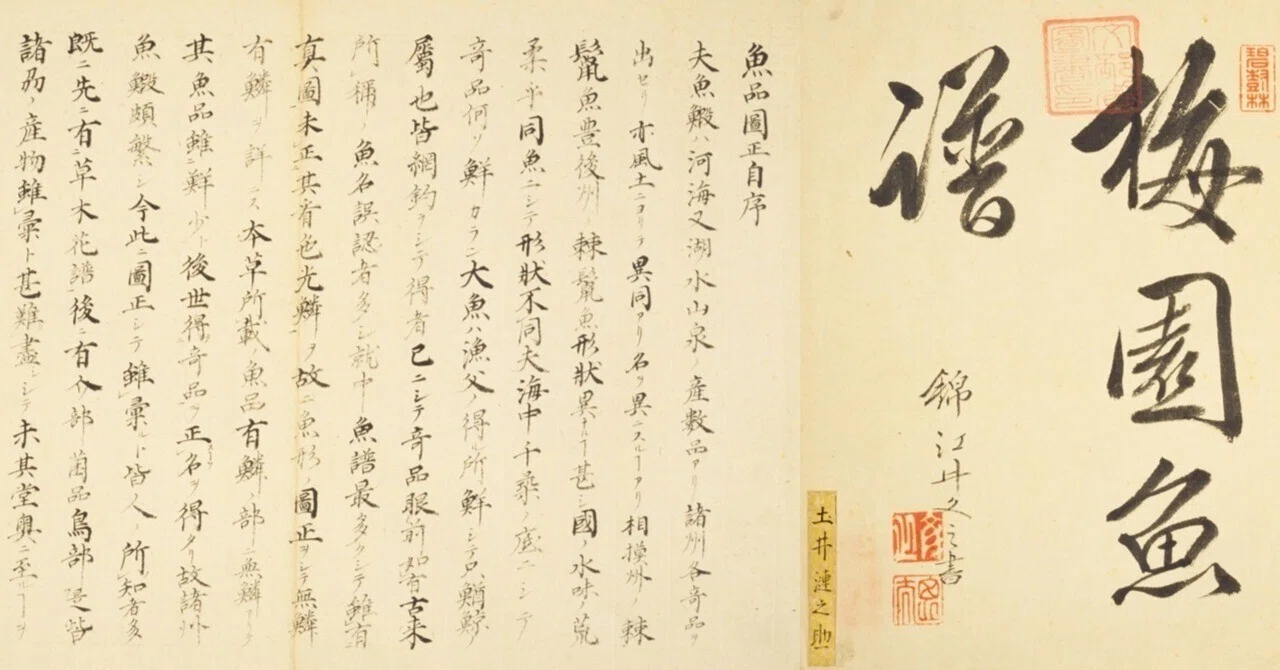 梅園魚
譜
錦江井文之書
土井漣之助
魚品圖正自序
夫魚鰕ハ河海又湖水山泉ノ産數品アリ諸州各奇品ヲ
出セリ亦風土ニヨリテ異同アリ名ヲ異ニスルヿアリ相摸州ノ棘
鬣魚豊後州ノ棘鬣魚形狀異ナルヿ甚シ國ノ水味ノ荒
柔半同魚ニシテ形狀不同大海中千尋ノ底ニシテ
奇品何ソ鮮カラン大魚ハ漁父ノ得ル所鮮シテ只鰌鯨
屬也皆網釣ヲシテ得者已ニシテ奇品眼前如有古来
所稱ノ魚名誤認者多シ就中魚譜最多クシテ雖有
真圖未正其看色光鱗ヲ故ニ魚形ノ圖正ヲシテ無鱗
有鱗ヲ詳ニス本草所載ノ魚品有鱗ノ部ニ無鱗
其魚品雖鮮少ト後世得奇品ヲ正名ヲ得タリ故諸州
魚鰕頗繁シ今此ニ圖正シテ雖彙ルト皆人ノ所知者多
既ニ先ニ有草木花譜後ニ有介部菌品鳥部
諸刕ノ産物雖彙ト甚難盡シテ未其堂奥ニ至ルヿヲ